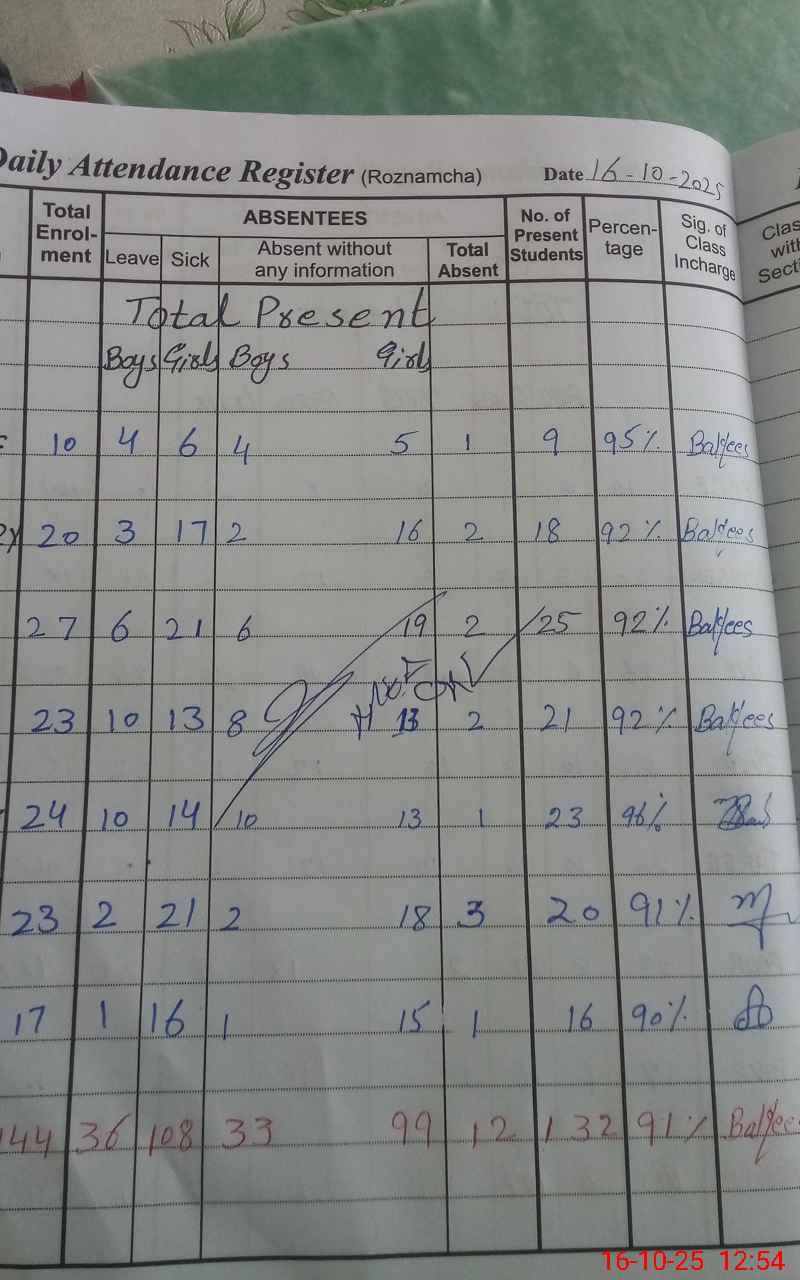 Daily Attendance Register (Roznamcha) Date 16-10-2025
Total Enrol-ment ABSENTEES No. of Present Students Percen-tage Sig. of Class Incharge
Leave Sick Absent without any information Total Absent
Total Present
Boys Girls Boys Girls
10 4 6 4 5 1 9 95% Balqees
20 3 17 2 16 2 18 92% Balqees
27 6 21 6 19 2 25 92% Balqees
23 10 13 8 13 2 21 92% Balqees
24 10 14 10 13 1 23 96%
23 2 21 2 18 3 20 91%
17 1 16 1 15 1 16 90%
144 36 108 33 99 12 132 91% Balqees
16-10-25 12:54